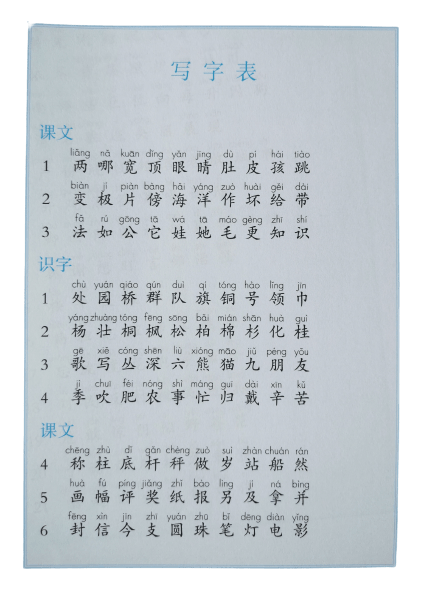 写字表
课文
liǎng nǎ kuān dǐng yǎn jīng dù pí hái tiào
1 两 哪 宽 顶 眼 睛 肚 皮 孩 跳
biàn jí piàn bàng hǎi yáng zuò huài gěi dài
2 变 极 片 傍 海 洋 作 坏 给 带
fǎ rú gōng tā wá tā máo gèng zhī shí
3 法 如 公 它 娃 她 毛 更 知 识
识字
chù yuán qiáo qún duì qí tóng hào lǐng jīn
1 处 园 桥 群 队 旗 铜 号 领 巾
yáng zhuàng tóng fēng sōng bǎi mián shān huà guì
2 杨 壮 桐 枫 松 柏 棉 杉 化 桂
gē xiě cóng shēn liù xióng māo jiǔ péng yǒu
3 歌 写 丛 深 六 熊 猫 九 朋 友
jì chuī féi nóng shì máng guī dài xīn kǔ
4 季 吹 肥 农 事 忙 归 戴 辛 苦
课文
chēng zhù dǐ gān chèng zuò suì zhàn chuán rán
4 称 柱 底 杆 秤 做 岁 站 船 然
huà fú píng jiǎng zhǐ bào lìng jí ná bìng
5 画 幅 评 奖 纸 报 另 及 拿 并
fēng xìn jīn zhī yuán zhū bǐ dēng diàn yǐng
6 封 信 今 支 圆 珠 笔 灯 电 影